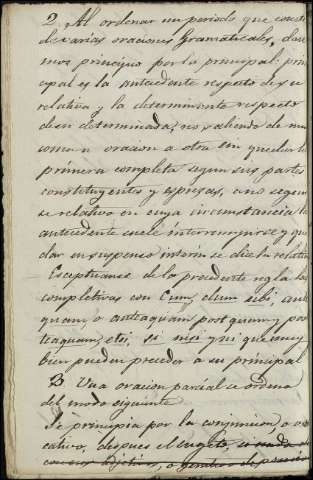 2 Al ordenar un periodo que conste
de varias oraciones Gramaticales, dare
mos principio por la principal: prin
cipal es la antecedente respecto de su
relativa y la determinante respecto
de su determinada; no saliendo de nin
guna oracion a otra sin quedar la
primera completa segun sus partes
constituyentes y espresas, a no seguir
se relativo en cuya circunstancia la
antecedente suele interrumpirse y que
dar en suspenso interin se dice la relativa
Esceptuanse de la precedente regla las
completivas con Cum, dum ubi, ant
quam, o antequam, postquam y pos
teaquam, etsi, si nisi y ni que muy
bien pueden preceder a su principal
3 Una oracion parcial se ordena
del modo siguiente
Se principia por la conjuncion, o vo
cativo, despues el sugeto,
con sus adjetivos, o genitivo de